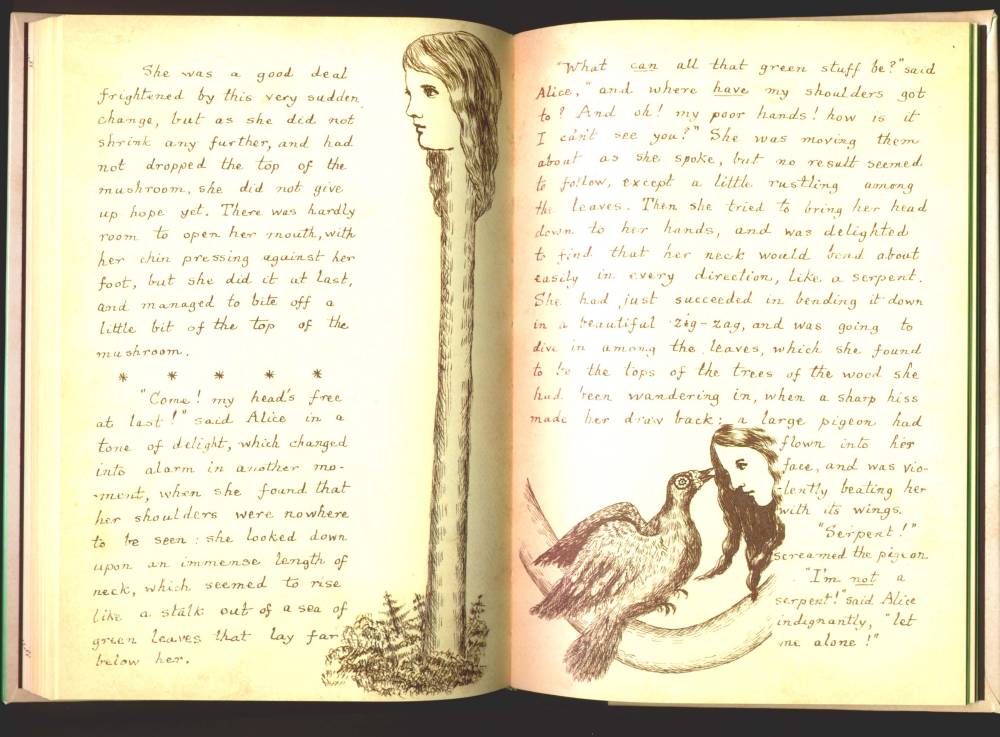 She was a good deal
frightened by this very sudden
change, but as she did not
shrink any further, and had
not dropped the top of the
mushroom, she did not give
up hope yet. There was hardly
room to open her mouth, with
her chin pressing against her
foot, but she did it at last,
and managed to bite off a
little bit of the top of the
mushroom.
* * * * *
"Come! my head's free
at last!" said Alice in a
tone of delight, which changed
into alarm in another mo-
-ment, when she found that
her shoulders were nowhere
to be seen: she looked down
upon an immense length of
neck, which seemed to rise
like a stalk out of a sea of
green leaves that lay far
below her.
"What can all that green stuff be?" said
Alice, "and where have my shoulders got
to? And oh! my poor hands! how is it
I can't see you?" She was moving them
about as she spoke, but no result seemed
to follow, except a little rustling among
the leaves. Then she tried to bring her head
down to her hands, and was delighted
to find that her neck would bend about
easily in every direction, like a serpent.
She had just succeeded in bending it down
in a beautiful zig-zag, and was going to
dive in among the leaves, which she found
to be the tops of the trees of the wood she
had been wandering in, when a sharp hiss
made her draw back: a large pigeon had
flown into her
face, and was vio-
-lently beating her
with its wings.
"Serpent!"
screamed the pigeon.
"I'm not a
serpent!" said Alice
indignantly, "let
me alone!"